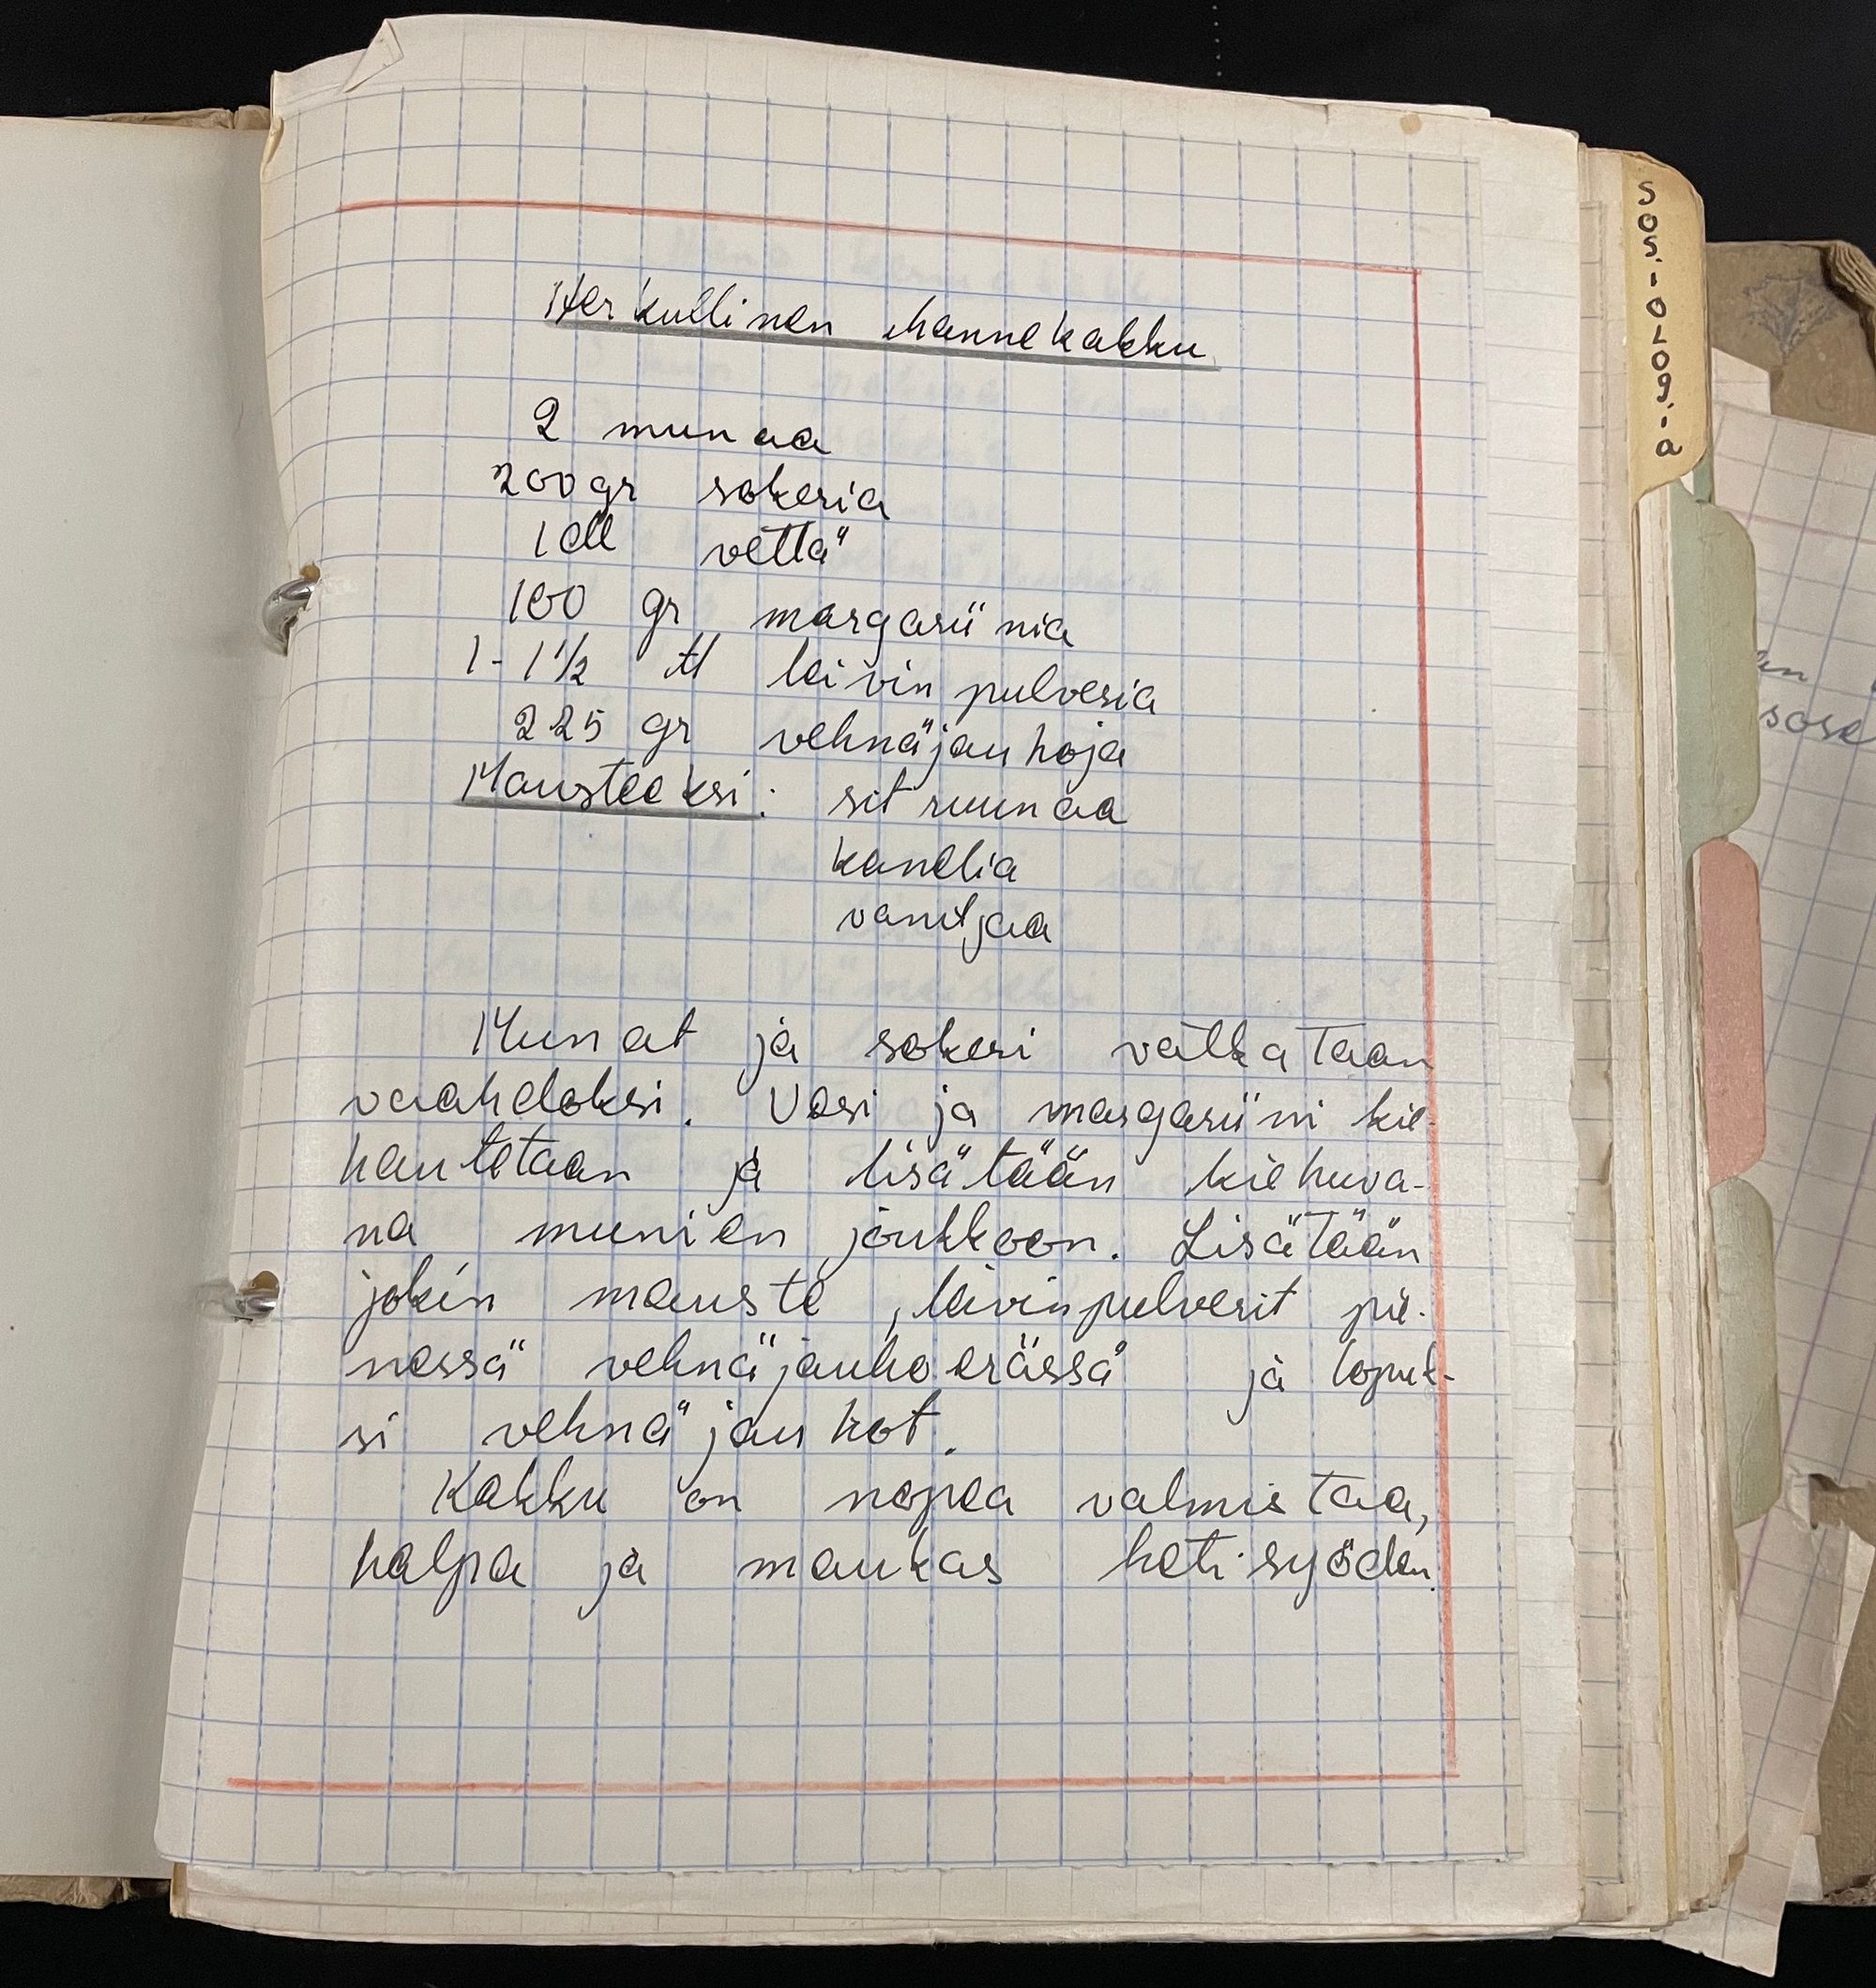 Herkullinen hannekakku
2 munaa
200 gr sokeria
1 dl vettä
100 gr margariinia
1-1 1/2 tl leivinpulveria
225 gr vehnäjauhoja
Mausteeksi: sitruunaa
kanelia
vaniljaa
Munat ja sokeri vatkataan
vaahdoksi. Vesi ja margariini kie-
hautetaan ja lisätään kiehuva-
na munien joukkoon. Lisätään
jokin mauste, leivinpulverit pie-
nessä vehnäjauhoerässä ja lopuk-
si vehnäjauhot.
Kakku on nopea valmistaa,
halpa ja maukas heti syöden.
sosiologia
sose